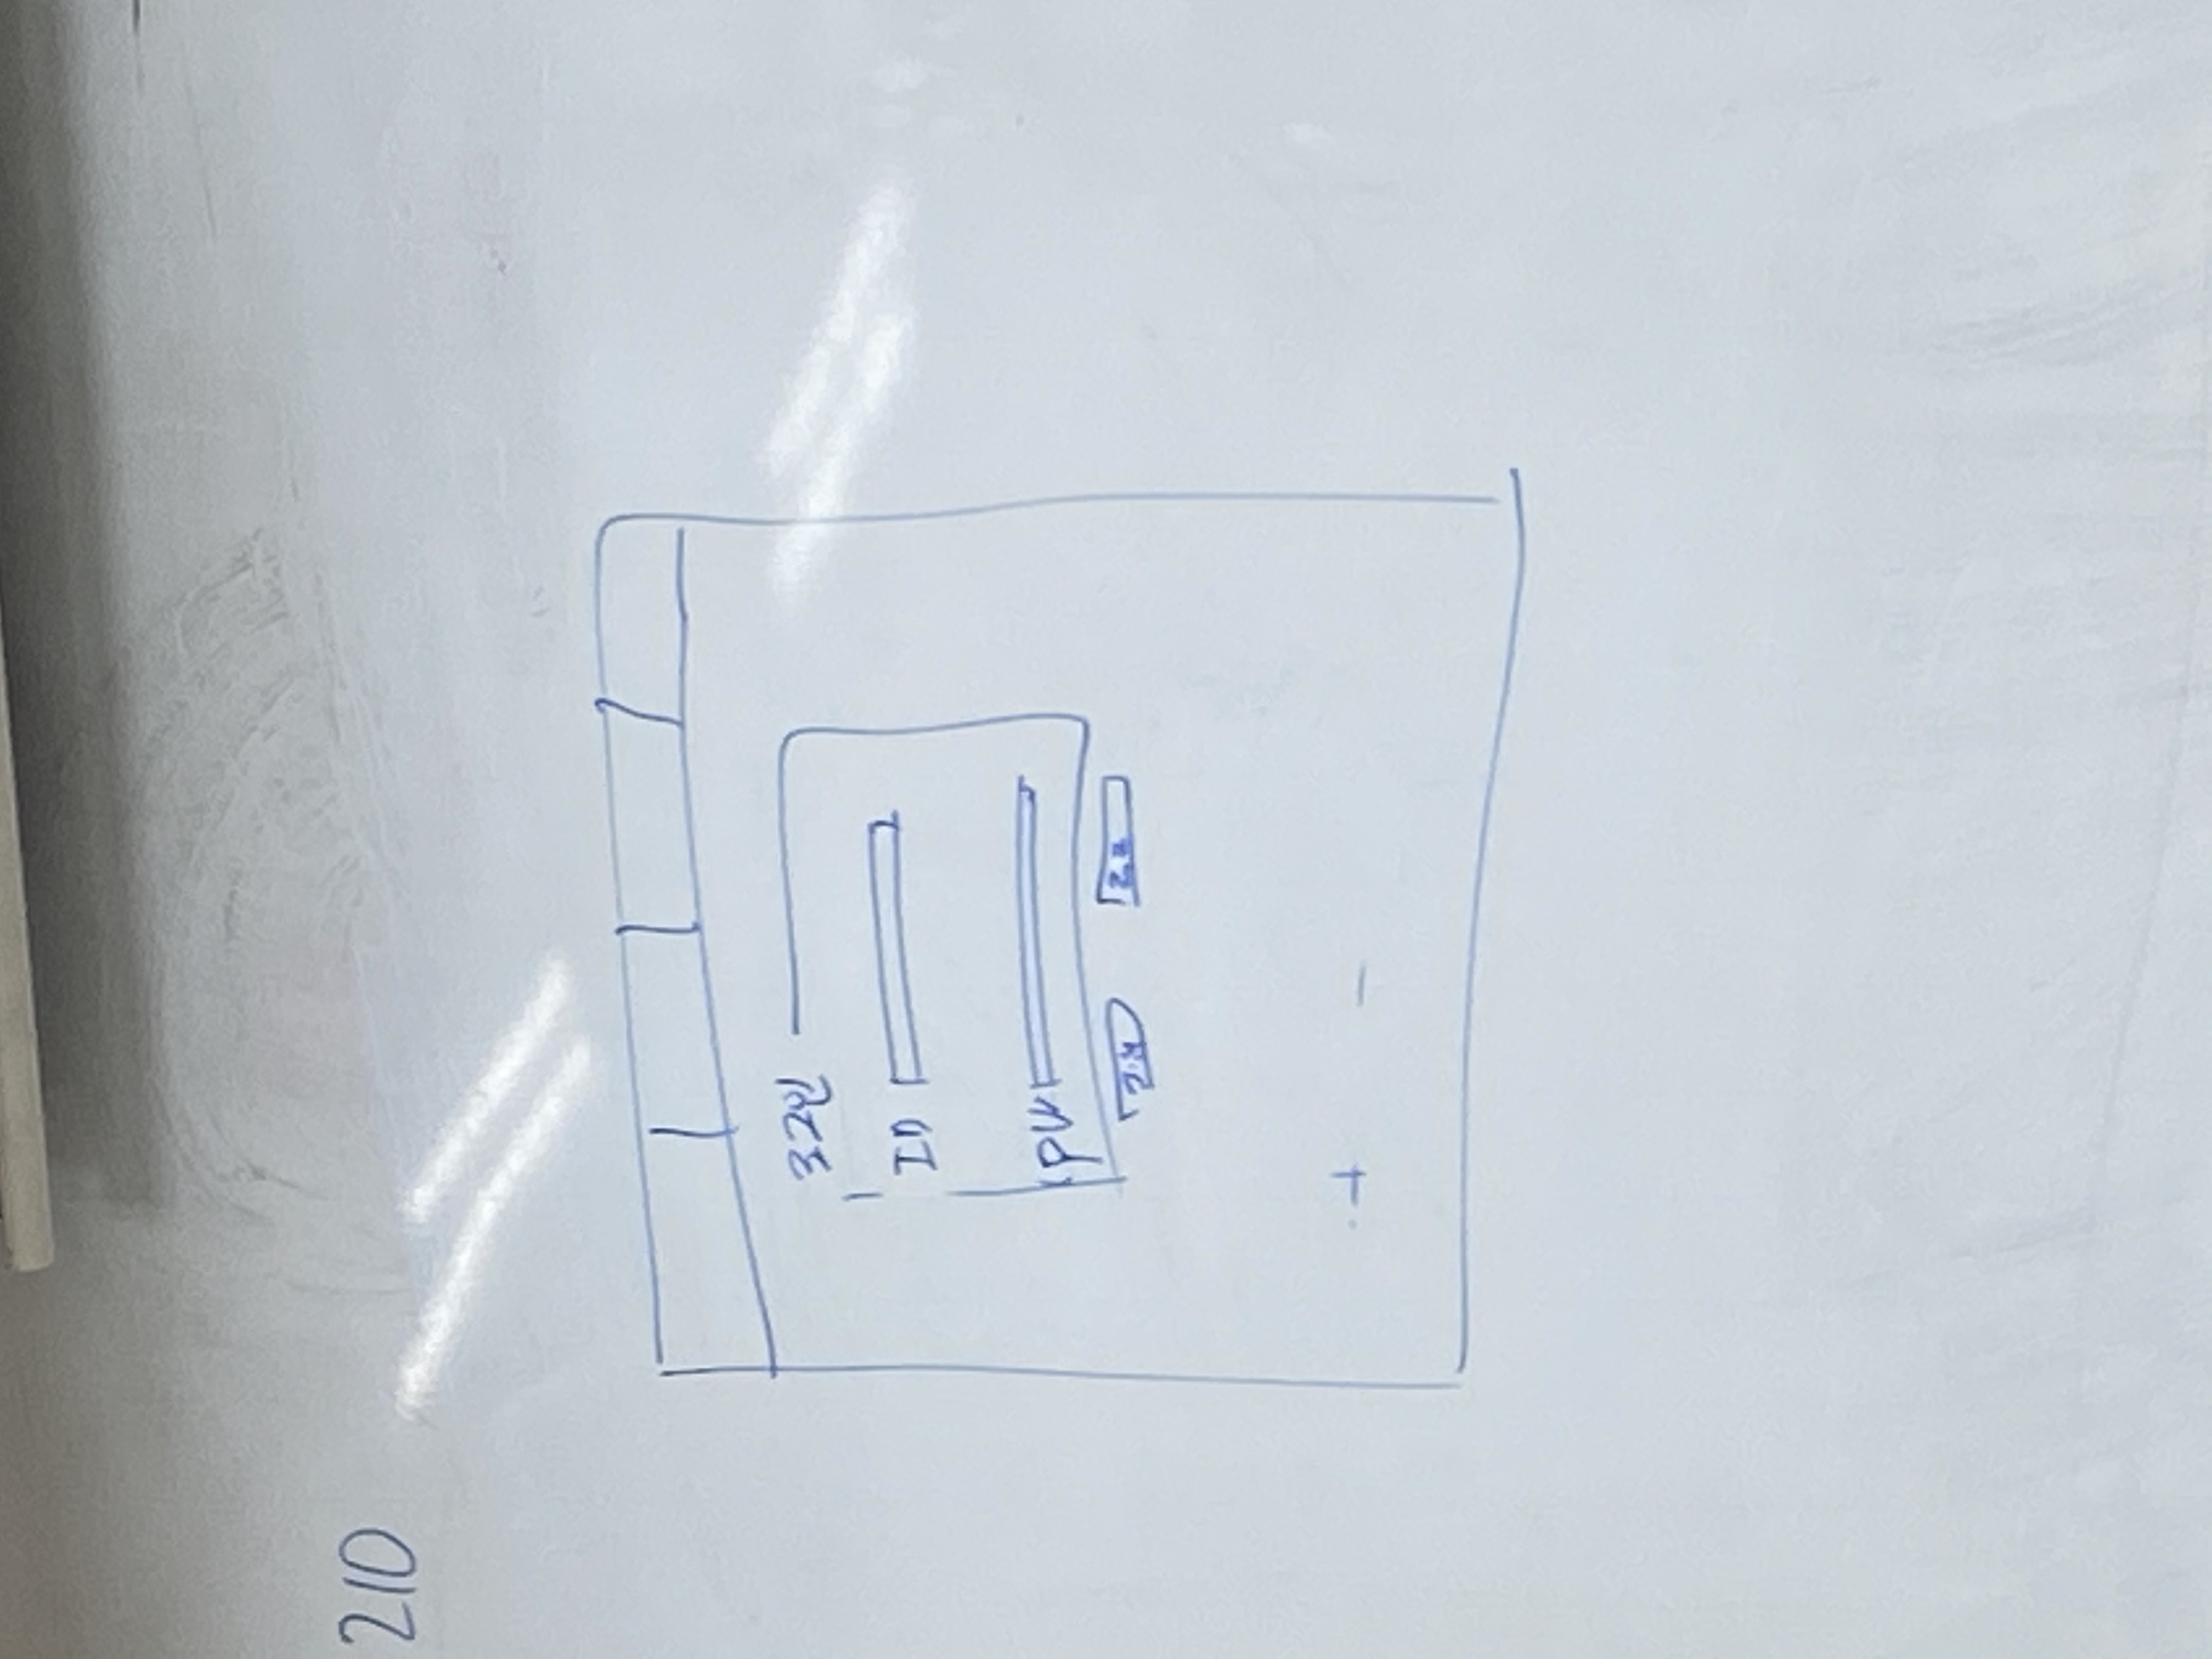 210
로그인
ID
PW
+ -